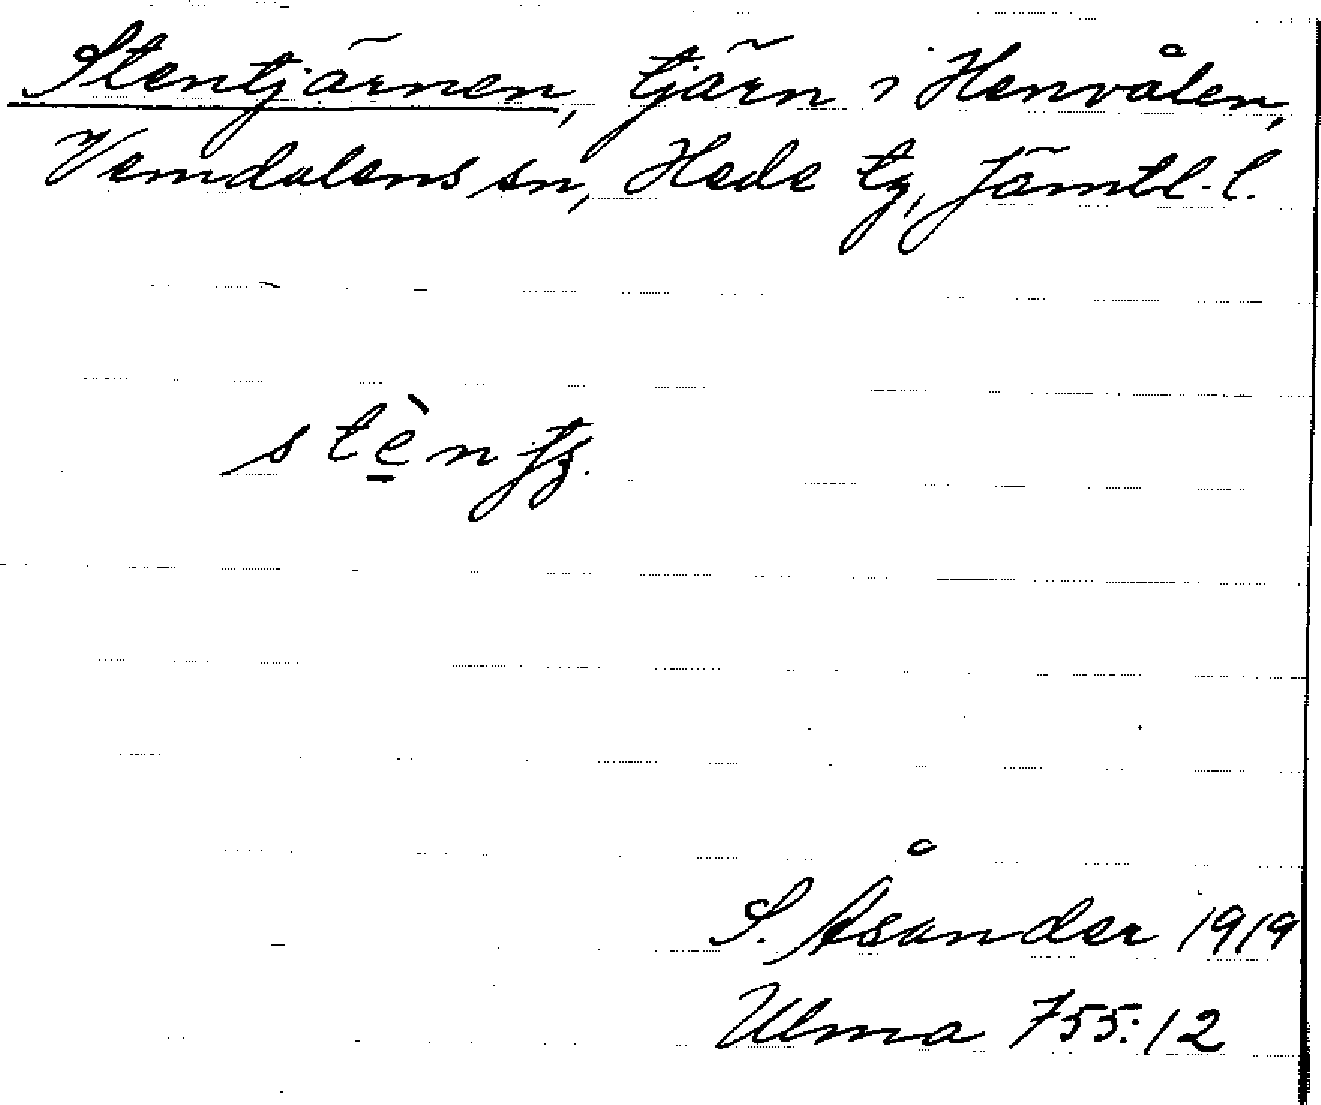 Stentjärnen, tjärn i Henvålen,
Vemdalens sn, Hede tg, Jämtl. l.
S. Åsander 1919
Ulma 755:12